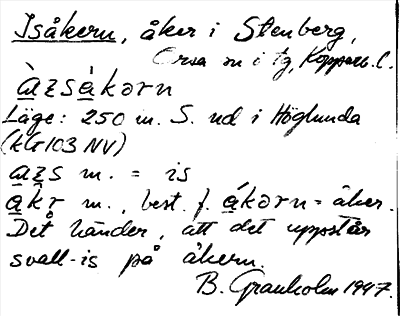 Isåkern, åker i Stenberg,
Orsa sn i tg, Kopparb. l.
a̲zsa̲kərn
Läge: 250 m. S. nd i Höglunda
(ktr 103 NV)
a̲zs m. = is
a̲kr m., best. f. a̲kərn = åker.
Det händer, att det uppstår
svall-is på åkern.
B. Granholm 1947.